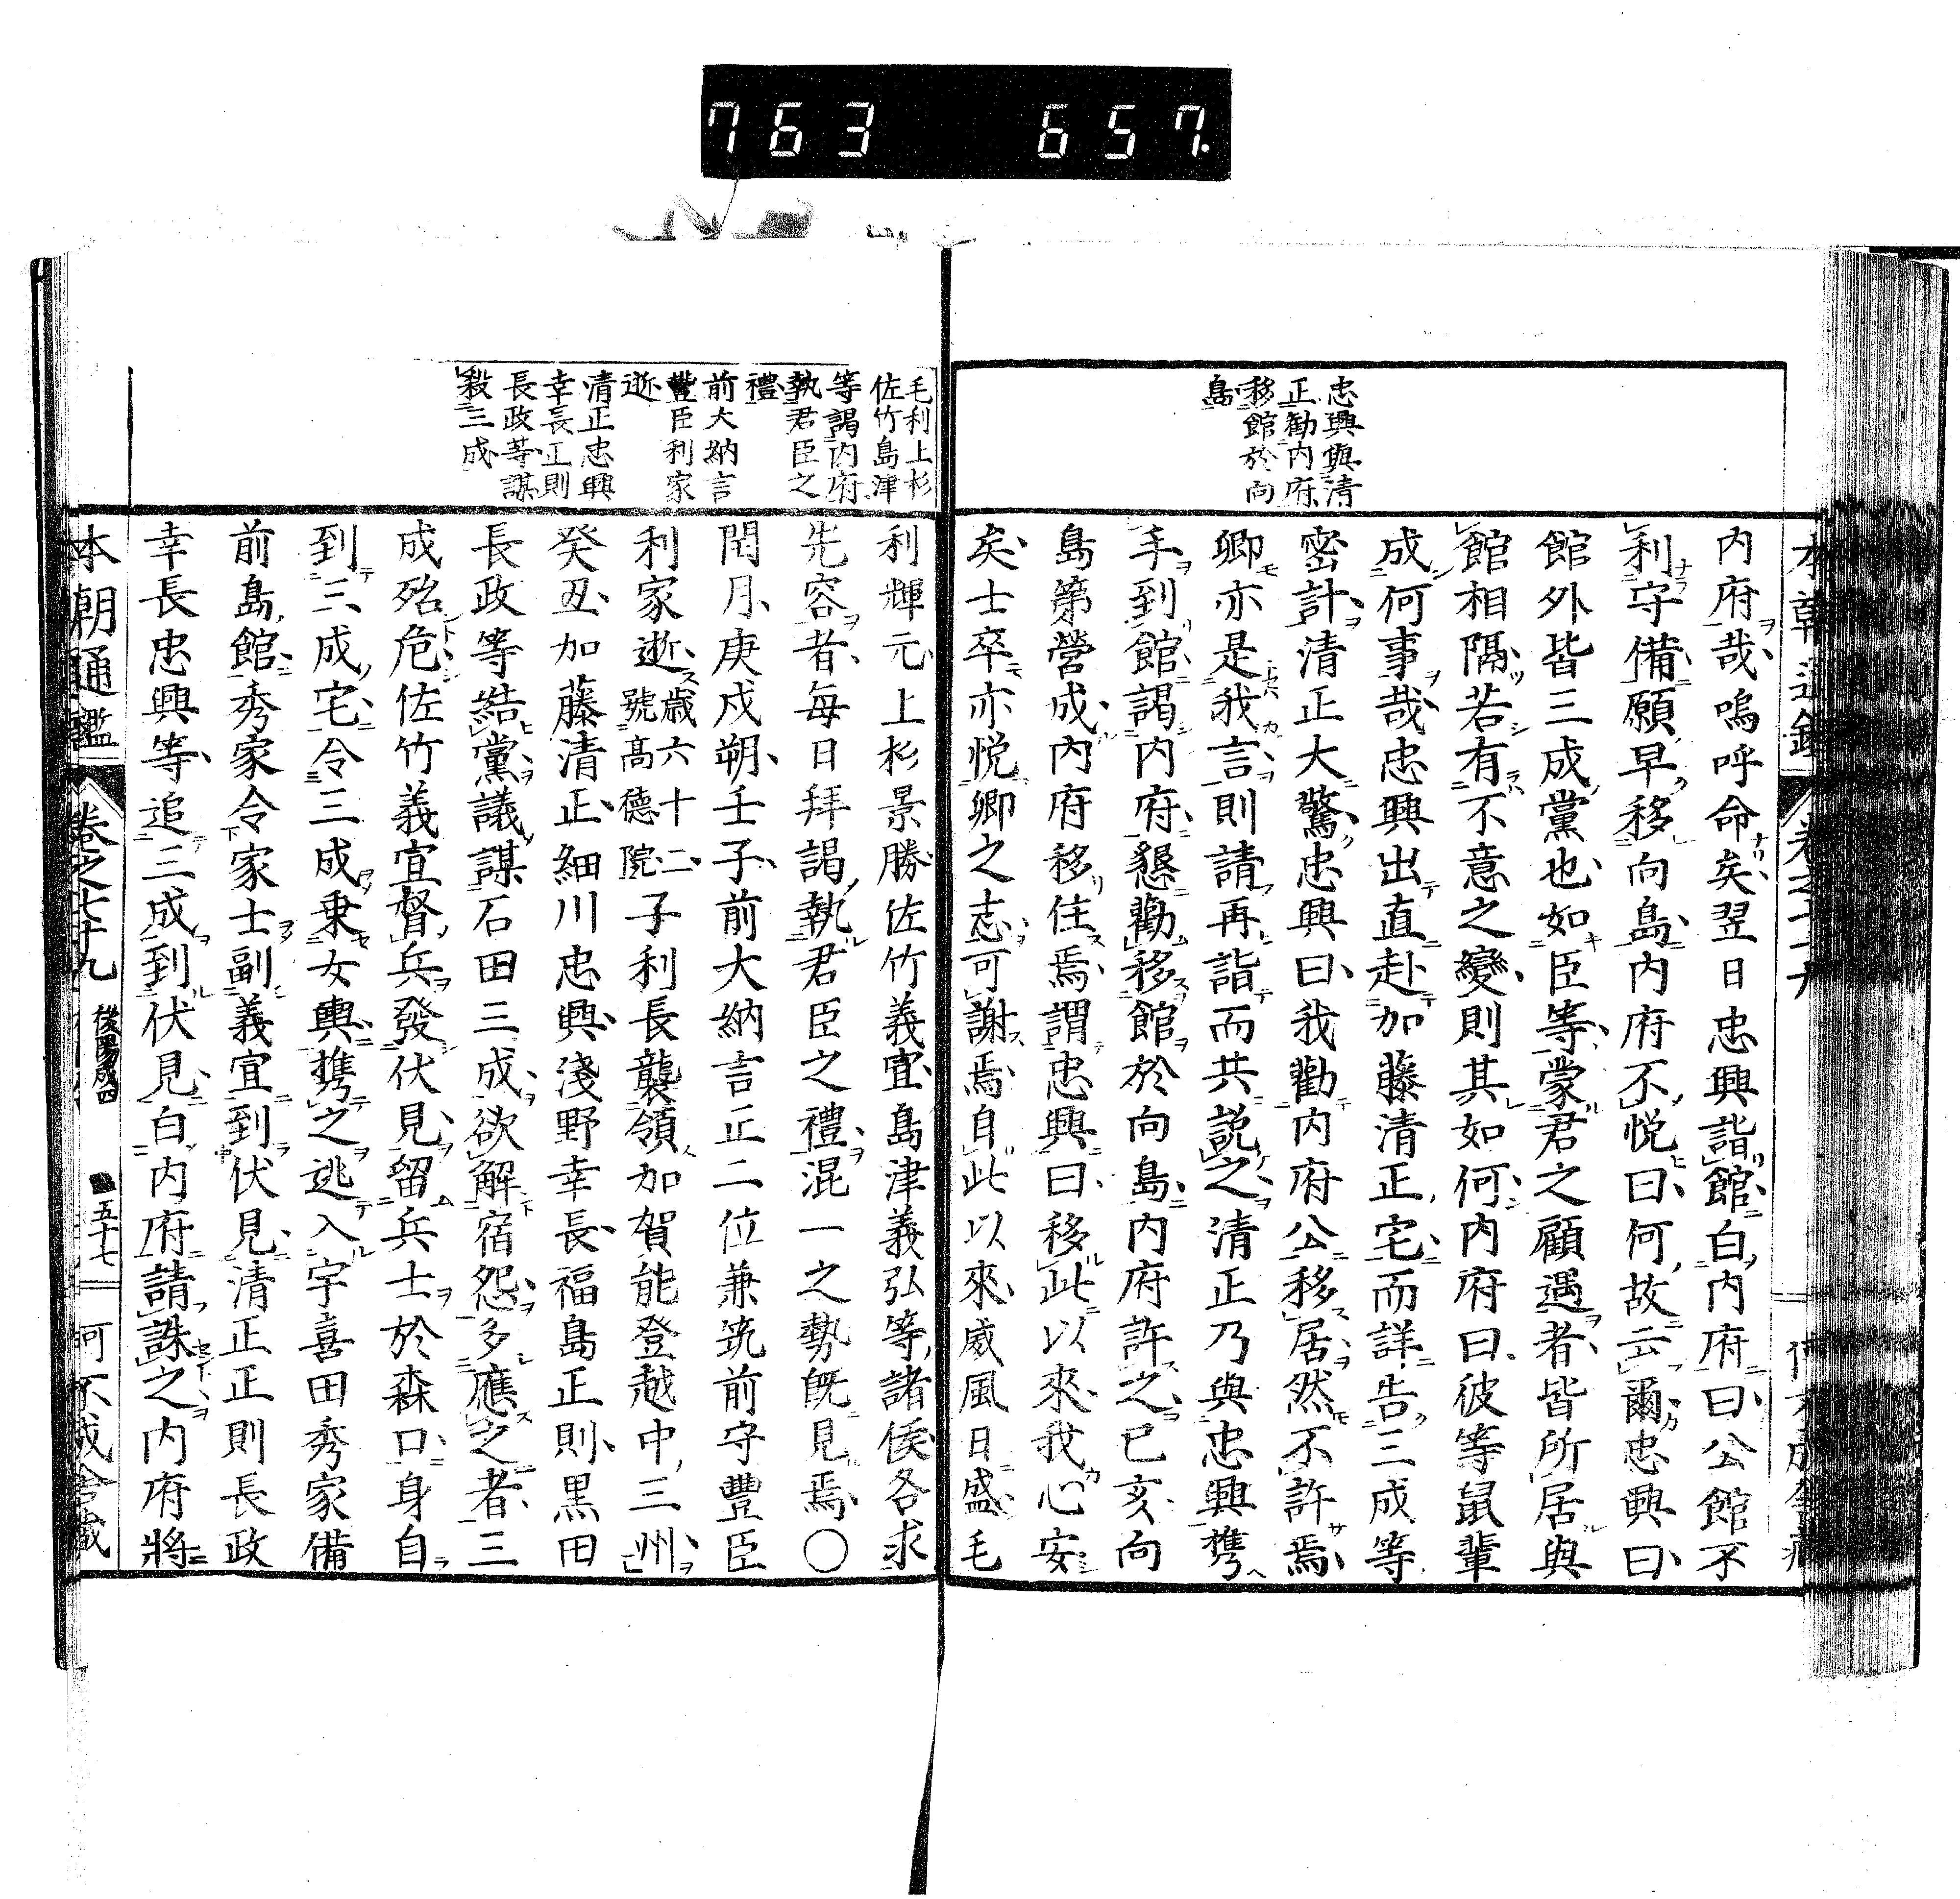 763 657.
忠興與清
正勸内府
移館於向
島
内府哉嗚呼命矣翌日忠興詣館白内府曰公館不
利守備願早移向島内府不悦曰何故云爾忠興曰
館外皆三成黨也如臣等蒙君之顧遇者皆所居與
館相隔若有不意之變則其如何内府曰彼等鼠輩
成何事哉忠興出直赴加藤清正宅而詳告三成等
密計清正大驚忠興曰我勸内府公移居然不許焉
卿亦是我言則請再詣而共説之清正乃與忠興携
手到館謁内府懇勸移館於向島内府許之已亥向
島第營成内府移住焉謂忠興曰移此以來我心安
矣士卒亦悦卿之志可謝焉自此以來威風日盛毛
毛利上杉
佐竹島津
等謁内府
執君臣之
禮
前大納言
豐臣利家
逝
清正忠興
幸長正則
長政等謀
殺三成
利輝元上杉景勝佐竹義宜島津義弘等諸侯各求
先容者毎日拜謁執君臣之禮混一之勢既見焉〇
閏月庚戌朔壬子前大納言正二位兼筑前守豐臣
利家逝歳六十二號高德院子利長襲領加賀能登越中三州
癸丑加藤清正細川忠興淺野幸長福島正則黒田
長政等結黨議謀石田三成欲解宿怨多應之者三
成殆危佐竹義宜督兵發伏見留兵士於森口身自
到三成宅令三成乗女輿携之逃入宇喜田秀家備
前島館秀家令家士副義宜到伏見清正正則長政
幸長忠興等追三成到伏見白内府請誅之内府將
本朝通鑑 卷之七十九 後陽成四 五十七